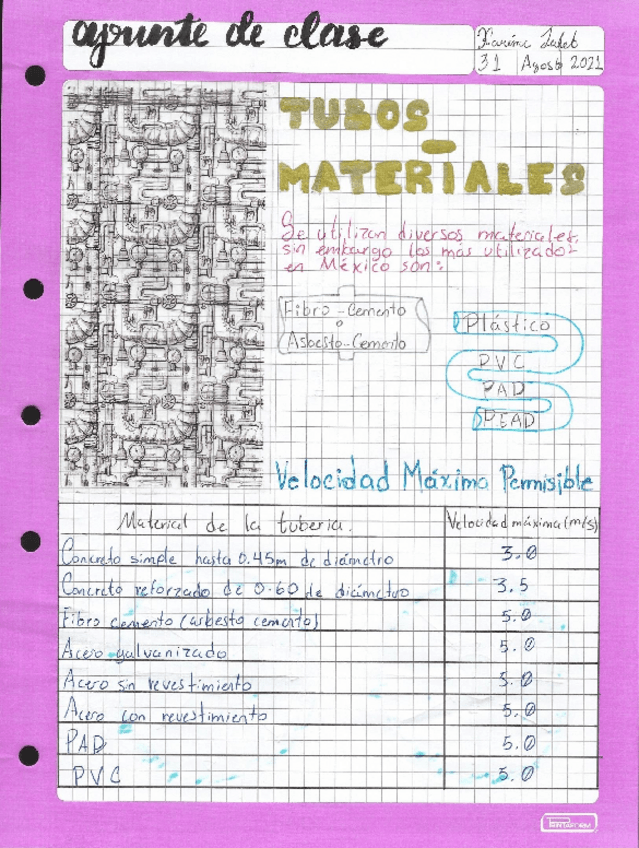 apunte de clase
31 Agosto 2021
TUBOS
-
MATERIALES
Se utilizan diversos materiales,
sin embargo los más utilizados
en México son:
Fibro-Cemento
o
Asbesto-Cemento
Plástico
PVC
PAD
PEAD
Velocidad Máxima Permisible
Material de la tuberia. Velocidad máxima (m/s)
Concreto simple hasta 0.45m de diámetro 3.0
Concreto reforzado de 0.60 de diámetro 3.5
Fibro cemento (asbesto cemento) 5.0
Acero galvanizado 5.0
Acero sin revestimiento 5.0
Acero con revestimiento 5.0
PAD 5.0
PVC 5.0